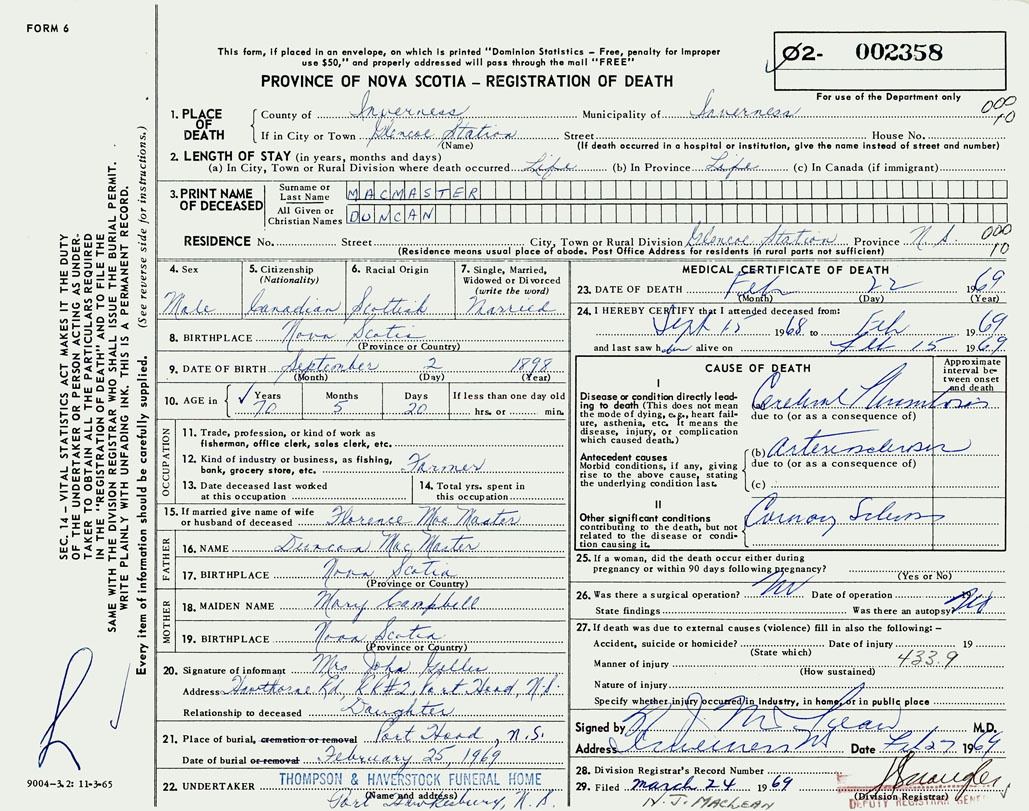 FORM 6
This form, if placed in an envelope, on which is printed "Dominion Statistics – Free, penalty for improper
use $50," and properly addressed will pass through the mail "FREE"
02- 002358
PROVINCE OF NOVA SCOTIA – REGISTRATION OF DEATH
For use of the Department only
1. PLACE OF DEATH
County of Inverness Municipality of Inverness
000 10
If in City or Town Glencoe Station Street House No.
(Name) (If death occurred in a hospital or institution, give the name instead of street and number)
2. LENGTH OF STAY (in years, months and days)
(a) In City, Town or Rural Division where death occurred Life (b) In Province Life (c) In Canada (if immigrant)
3. PRINT NAME OF DECEASED
Surname or Last Name MACMASTER
All Given or Christian Names DUNCAN
RESIDENCE No. Street City, Town or Rural Division Glencoe Station Province N.S.
000 10
(Residence means usual place of abode. Post Office Address for residents in rural parts not sufficient)
4. Sex
Male
5. Citizenship
(Nationality)
Canadian
6. Racial Origin
Scottish
7. Single, Married,
Widowed or Divorced
(write the word)
Married
8. BIRTHPLACE Nova Scotia
(Province or Country)
9. DATE OF BIRTH September 2 1898
(Month) (Day) (Year)
10. AGE in
Years Months Days If less than one day old
70 5 20 hrs. or min.
OCCUPATION
11. Trade, profession, or kind of work as
fisherman, office clerk, sales clerk, etc.
12. Kind of industry or business, as fishing,
bank, grocery store, etc. Farmer
13. Date deceased last worked
at this occupation
14. Total yrs. spent in
this occupation
15. If married give name of wife
or husband of deceased Florence MacMaster
FATHER
16. NAME Duncan MacMaster
17. BIRTHPLACE Nova Scotia
(Province or Country)
MOTHER
18. MAIDEN NAME Mary Campbell
19. BIRTHPLACE Nova Scotia
(Province or Country)
20. Signature of informant Mrs John
Address Hawthorne Rd, RR#2, Port Hood, N.S.
Relationship to deceased Daughter
21. Place of burial, cremation or removal Port Hood, N.S.
Date of burial or removal February 25, 1969
22. UNDERTAKER THOMPSON & HAVERSTOCK FUNERAL HOME
(Name and address)
Port Hawkesbury, N.S.
MEDICAL CERTIFICATE OF DEATH
23. DATE OF DEATH Feb 22 1969
(Month) (Day) (Year)
24. I HEREBY CERTIFY that I attended deceased from:
Sept 15 1968 to Feb 1969
and last saw him alive on Feb 15 1969
CAUSE OF DEATH
Approximate
interval be-
tween onset
and death
I
Disease or condition directly lead-
ing to death (This does not mean
the mode of dying, e.g., heart fail-
ure, asthenia, etc. It means the
disease, injury, or complication
which caused death.)
(a) Cerebral Thrombosis
due to (or as a consequence of)
Antecedent causes
Morbid conditions, if any, giving
rise to the above cause, stating
the underlying condition last.
(b) Arteriosclerosis
due to (or as a consequence of)
(c)
II
Other significant conditions
contributing to the death, but not
related to the disease or condi-
tion causing it.
25. If a woman, did the death occur either during
pregnancy or within 90 days following pregnancy?
(Yes or No)
26. Was there a surgical operation? No Date of operation 19
State findings Was there an autopsy? No
27. If death was due to external causes (violence) fill in also the following: –
Accident, suicide or homicide? Date of injury 19
(State which)
433.9
Manner of injury
(How sustained)
Nature of injury
Specify whether injury occurred in industry, in home, or in public place
Signed by M.D.
Address Inverness NS Date Feb 27 1969
28. Division Registrar's Record Number
29. Filed march 24 1969
(Division Registrar)
DEPUTY REGISTRAR GENERAL
N. J. MACLEAN
SEC. 14 – VITAL STATISTICS ACT MAKES IT THE DUTY
OF THE UNDERTAKER OR PERSON ACTING AS UNDER-
TAKER TO OBTAIN ALL THE PARTICULARS REQUIRED
IN THE "REGISTRATION OF DEATH" AND TO FILE THE
SAME WITH THE DIVISION REGISTRAR WHO SHALL ISSUE THE BURIAL PERMIT.
WRITE PLAINLY WITH UNFADING INK. THIS IS A PERMANENT RECORD.
Every item of information should be carefully supplied. (See reverse side for instructions.)
9004-3.2: 11-3-65